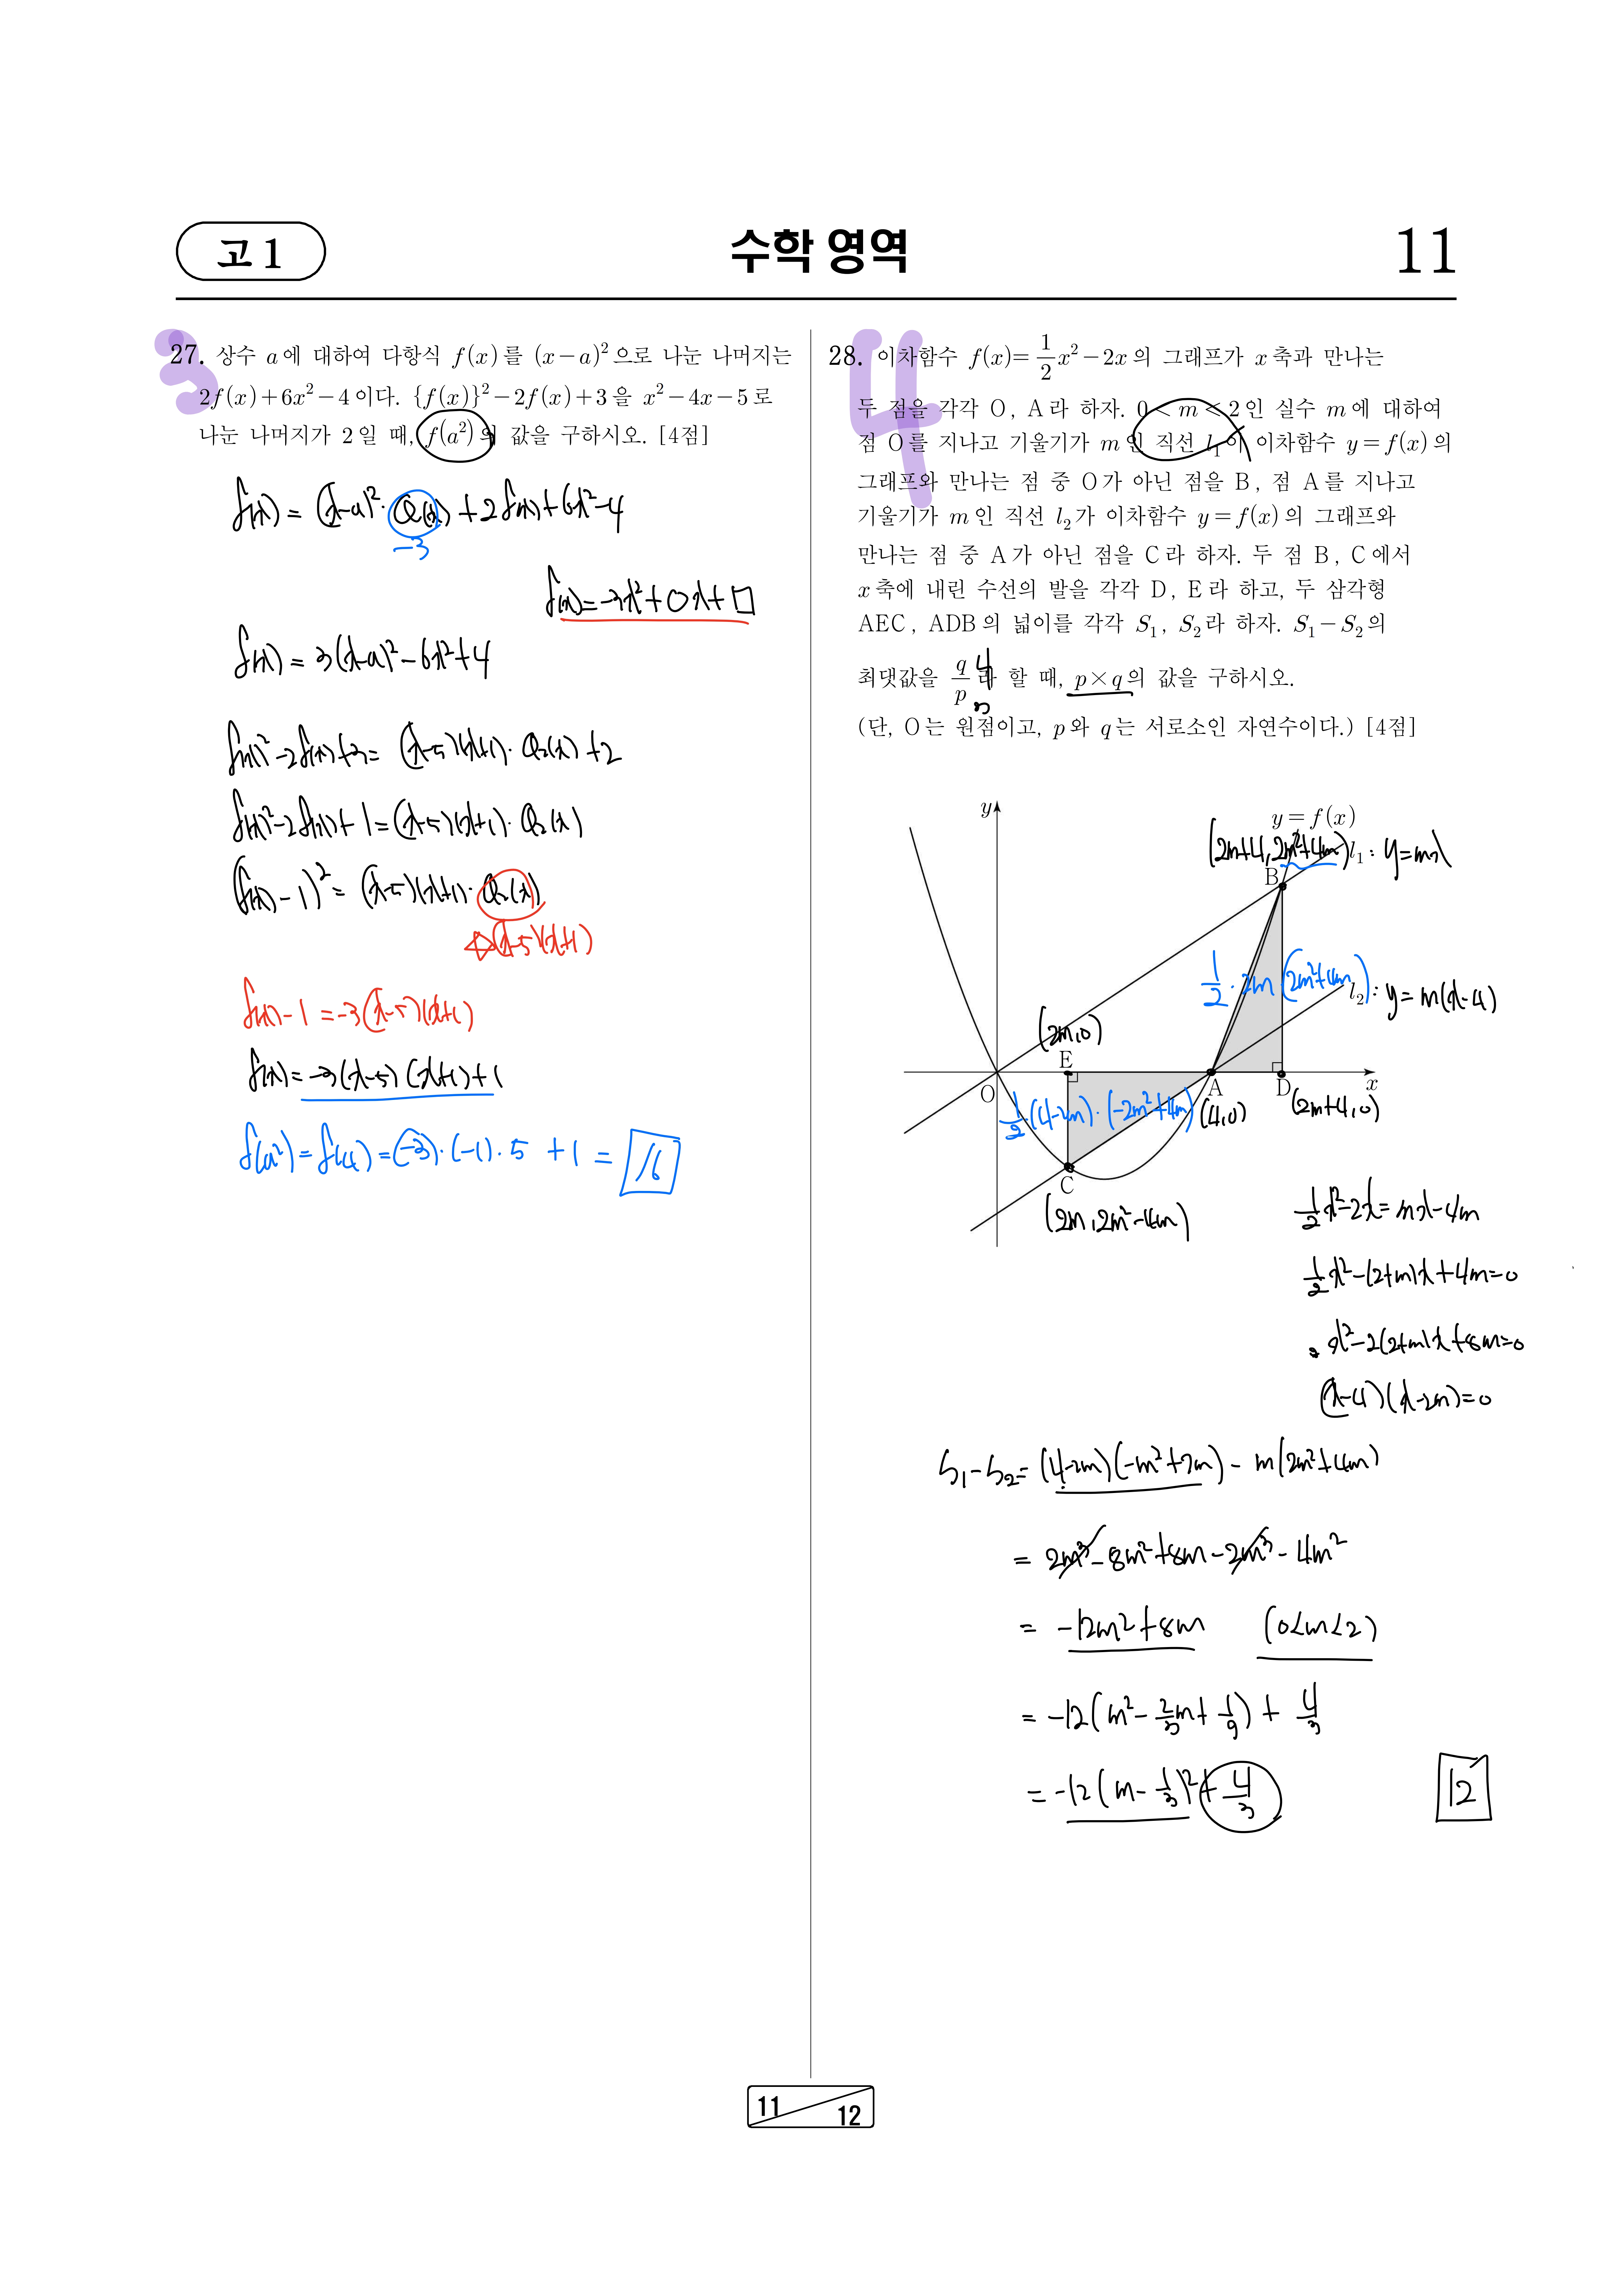 고 1
수학 영역
11
3
27. 상수 a에 대하여 다항식 f(x)를 (x-a)²으로 나눈 나머지는
2f(x)+6x²-4이다. {f(x)}²-2f(x)+3을 x²-4x-5로
나눈 나머지가 2일 때, f(a²)의 값을 구하시오. [4점]
f(x) = (x-a)²·Q(x)+2f(x)+6x²-4
-3
f(x)=-3x²+0x+□
f(x) = 3(x-a)²-6x²+4
f(x)²-2f(x)+3= (x-5)(x+1)·Q₂(x)+2
f(x)²-2f(x)+1=(x-5)(x+1)·Q₂(x)
(f(x)-1)²= (x-5)(x+1)·Q₂(x)
(x-5)(x+1)
f(x)-1 =-3(x-5)(x+1)
f(x)=-3(x-5)(x+1)+1
f(a²)=f(4)=(-3)·(-1)·5 +1 = 16
4
28. 이차함수 f(x)=1/2x²-2x의 그래프가 x축과 만나는
두 점을 각각 O, A라 하자. 0<m<2인 실수 m에 대하여
점 O를 지나고 기울기가 m인 직선 l₁이 이차함수 y=f(x)의
그래프와 만나는 점 중 O가 아닌 점을 B, 점 A를 지나고
기울기가 m인 직선 l₂가 이차함수 y=f(x)의 그래프와
만나는 점 중 A가 아닌 점을 C라 하자. 두 점 B, C에서
x축에 내린 수선의 발을 각각 D, E라 하고, 두 삼각형
AEC, ADB의 넓이를 각각 S₁, S₂라 하자. S₁-S₂의
최댓값을 q/p라 할 때, p×q의 값을 구하시오.
4
3
(단, O는 원점이고, p와 q는 서로소인 자연수이다.) [4점]
y
y=f(x)
(2m+4, 2m²+4m) l₁ : y=mx
B
1/2·2m(2m²+4m)
l₂ : y=m(x-4)
(2m,0)
E
O
A
D
x
1/2(4-2m)·(-2m²+4m)
(4,0)
(2m+4,0)
C
(2m, 2m²-4m)
1/2x²-2x=mx-4m
1/2x²-(2+m)x+4m=0
x²-2(2+m)x+8m=0
(x-4)(x-2m)=0
S₁-S₂=(4-2m)(-m²+2m)-m(2m²+4m)
= 2m³-8m²+8m-2m³-4m²
= -12m²+8m (0<m<2)
= -12(m²-2/3m+1/9)+4/3
= -12(m-1/3)²+4/3
12
11
12